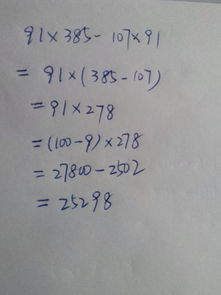 91×385-107×91
= 91×(385-107)
= 91×278
=(100-9)×278
=27800-2502
= 25298